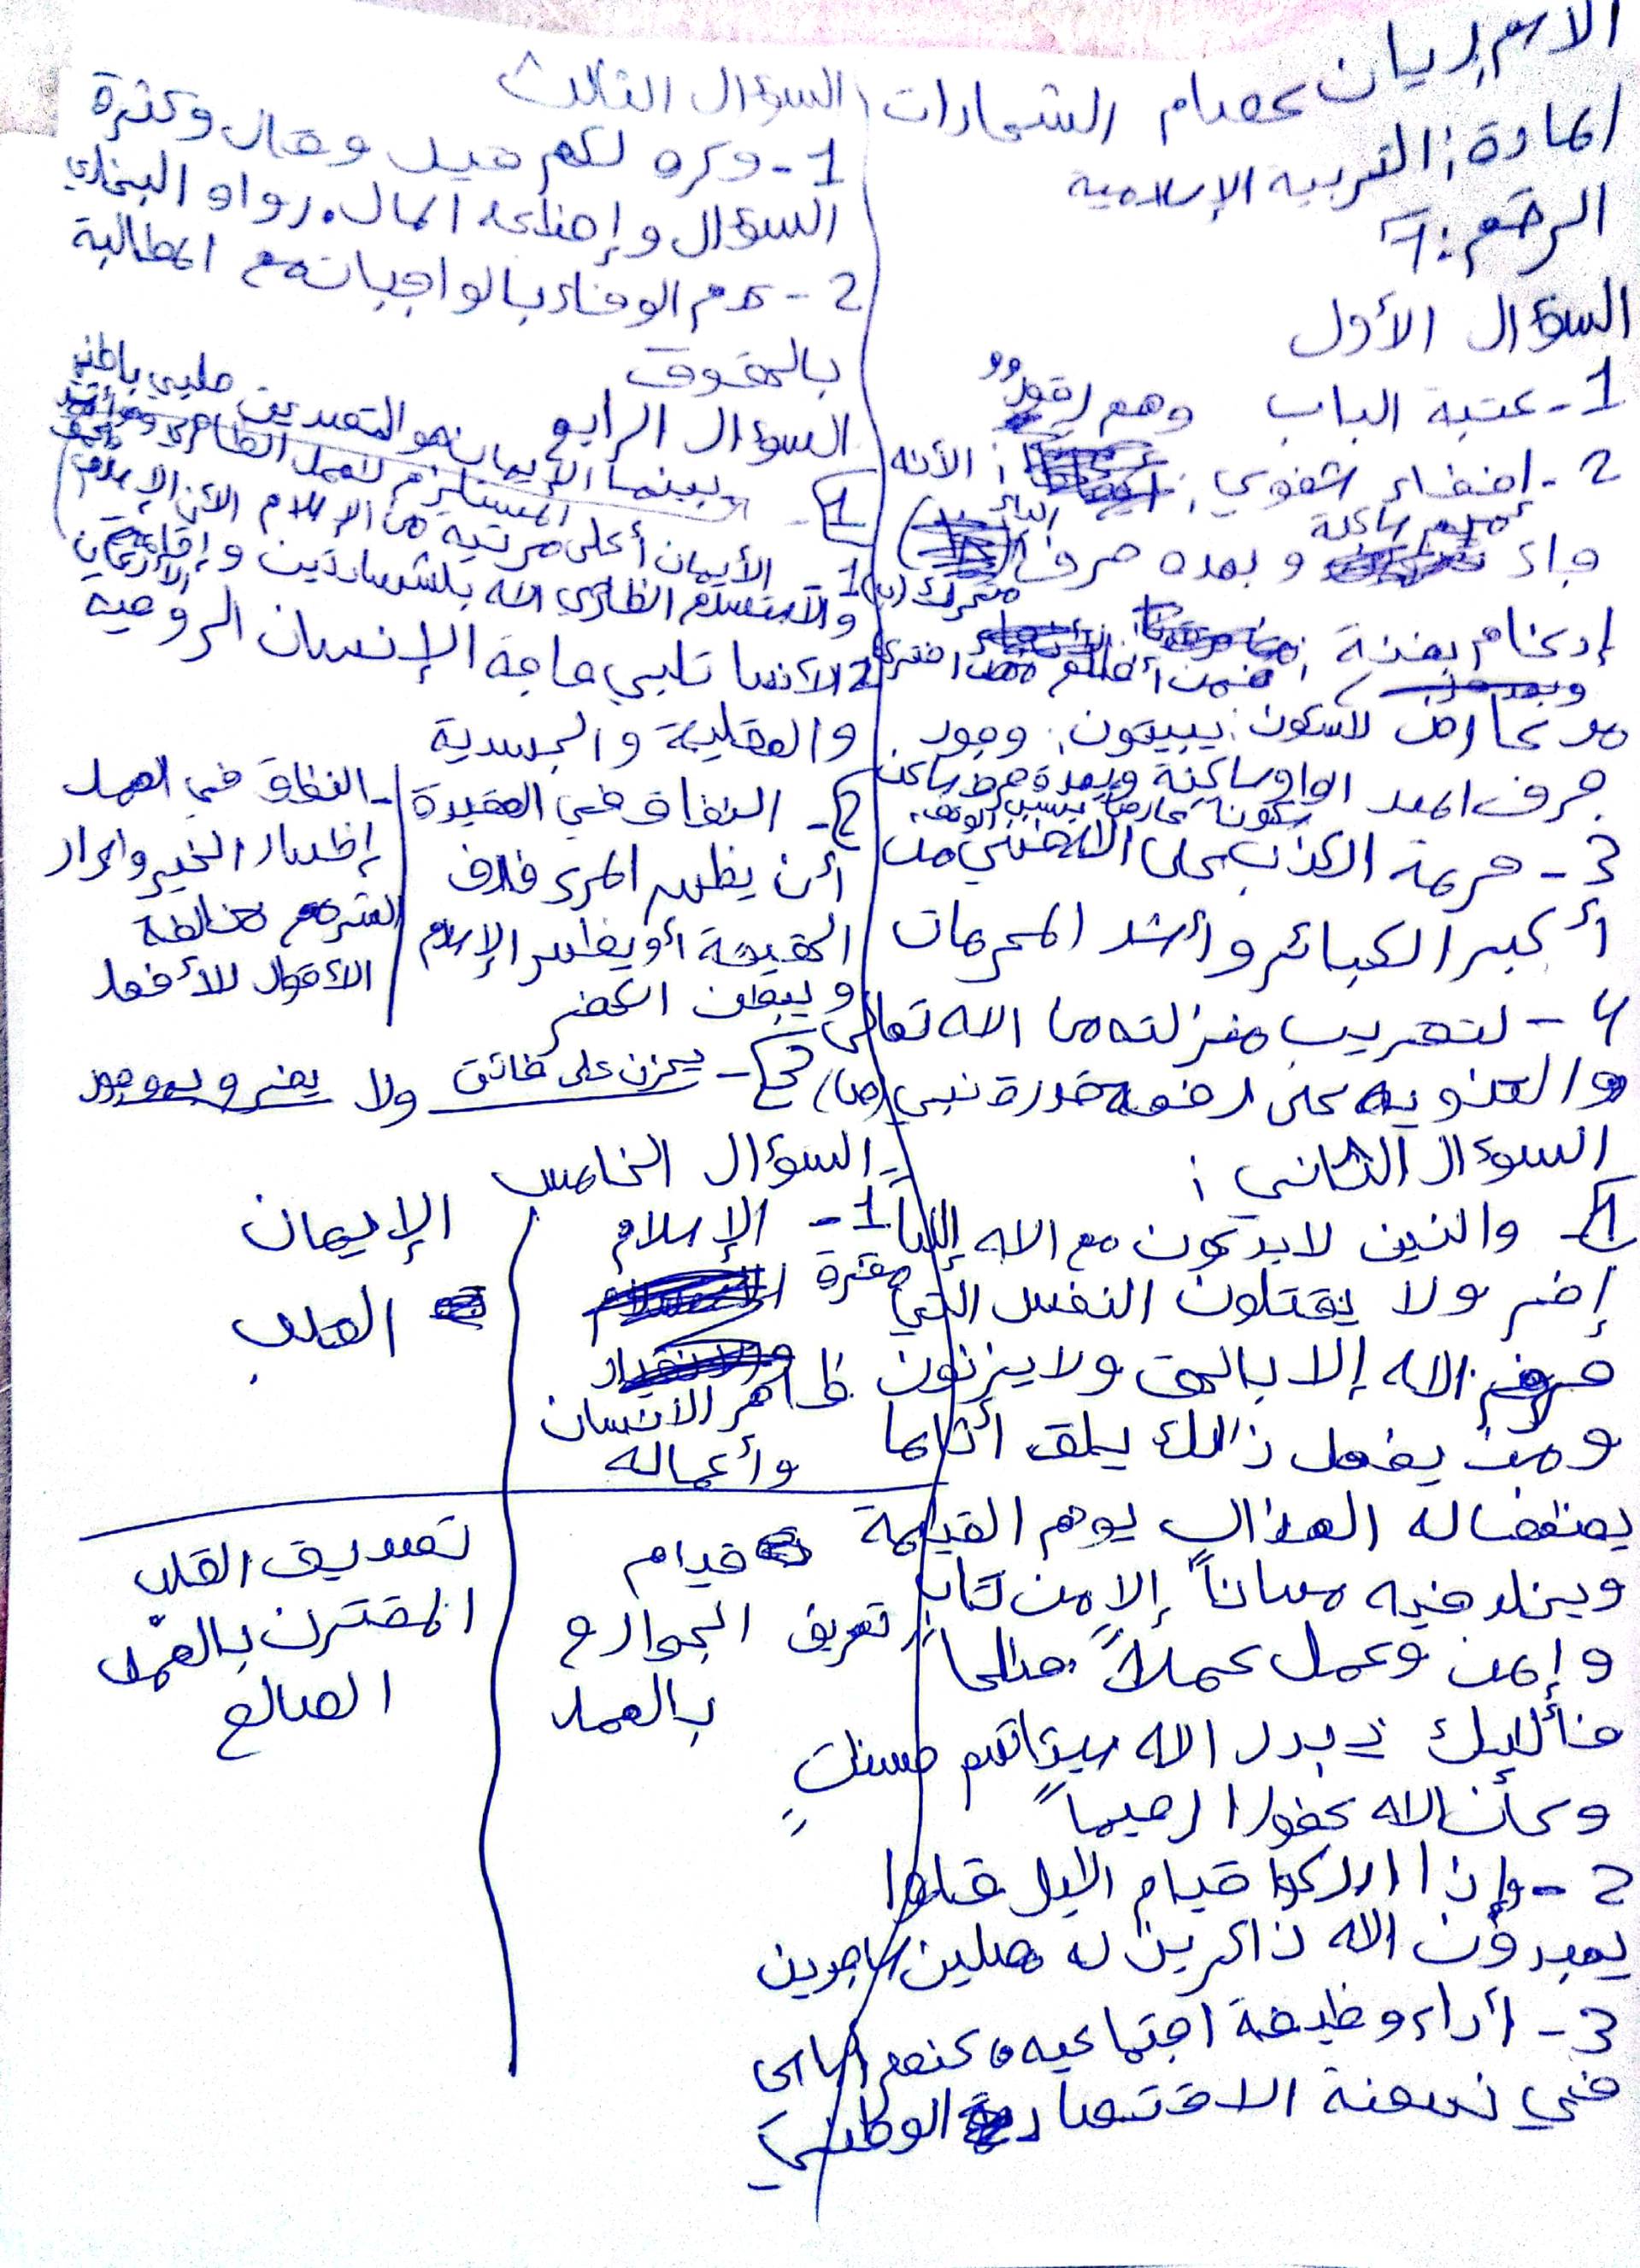 الاسم: ريان عصام الشحادات
المادة: التربيه الإسلامية
الرقم: 7
السؤال الأول
1- عتبة الباب وهم رقود"
2- إخفاء شفوي: الأنه
جاء ميم ساكنة وبعده حرف الباء
متحرك (ب)
إدغام بغنة: فمن أظلم ممن افترى
مد عارض للسكون: يبيتون: وجود
حرف المد الواو ساكنة وبعدة حرف ساكن
سكونا عارضا بسبب الوقف.
3- حرمة الكذب على الله فهي من
أكبر الكبائر وأشد المحرمات
4- لتقريب منزلته من الله تعالى
والتنويه على رفعه قدرة نبي (ص)
السوءال الثاني:
1- والذين لا يدعون مع الله إلهاً
إخر ولا يقتلون النفس التي
حرم الله إلا بالحق ولا يزنون
ومن يفعل ذالك يلق أثاما
يضعف له العذاب يوم القيمة
ويخلد فيه مهاناً إلا من تاب
وإمن وعمل عملاً صالحاً
فأليك يبدل الله سيئاتهم حسنت
وكأن الله غفورا رحيماً
2- وإذا أدركوا قيام اليل قاموا
يعبدون الله ذاكرين له مصلين ساجدين
3- أداء وظيفة اجتماعيه وعنصر أساسي
في نهضة الاقتصاد الوطني
السؤال الثالث
1- وكره لكم قيل وقال وكثرة
السؤال وإضاعة المال. رواه البخاري
2- عدم الوفاء بالواجبات مع المطالبة
بالحقوق
السوال الرابع
1- وبينما الإيمان هو التصديق قلبي باطني
المستلزم للعمل الظاهر
الأيمان أعلى مرتبه من الإسلام الأن الإسلام
1 والأستسلام الظاهري الله بلشهادتين وإقامة الأركان
2 الأنها تلبي حاجة الإنسان الروحية
والعقلية والجسدية
2- النفاق في العقيدة
أن يظهر المرء خلاف
الحقيقة أو يظهر الإسلام
ويبطن الكفر
- النفاق في العمل
إظهار الخير وإسرار
الشر مع مخالطة
الأقوال للأفعل
3- يحزن على فائت ولا يفرح بموجود
السؤال الخامس
1- الإسلام
الإيمان
مقرة
ظاهر الأنسان
وأعماله
القلب
تعريف
قيام
الجوارح
بالعمل
تصديق القلب
المقترن بالعمل
الصالح